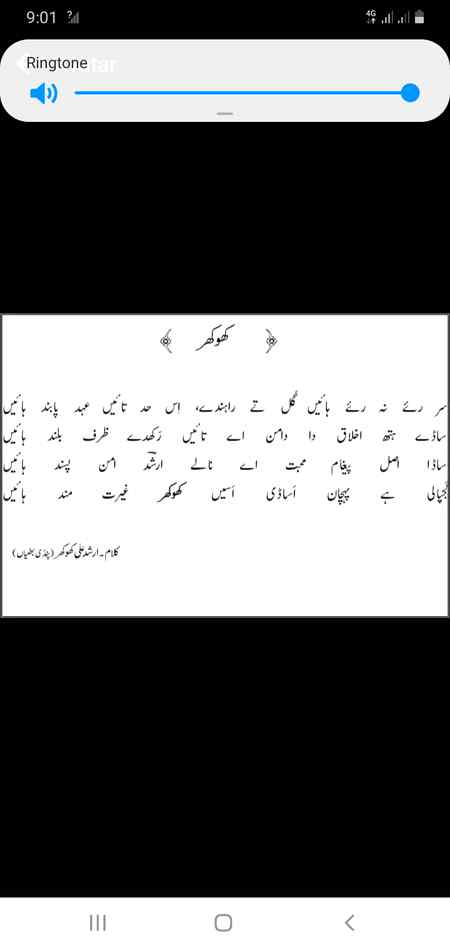 9:01
4G
Ringtone
کھوکھر
سر رئے نہ رئے ہائیں گل تے راہندے، اس حد تائیں عہد پابند ہائیں
ساڈے ہتھ اخلاق دا دامن اے تائیں رکھدے ظرف بلند ہائیں
ساڈا اصل پیغام محبت اے نالے ارشد امن پسند ہائیں
ہے پہچان اساڈی اسیں کھوکھر غیرت مند ہائیں
کلام۔ارشد علی کھوکھر (پنڈی بھٹیاں)